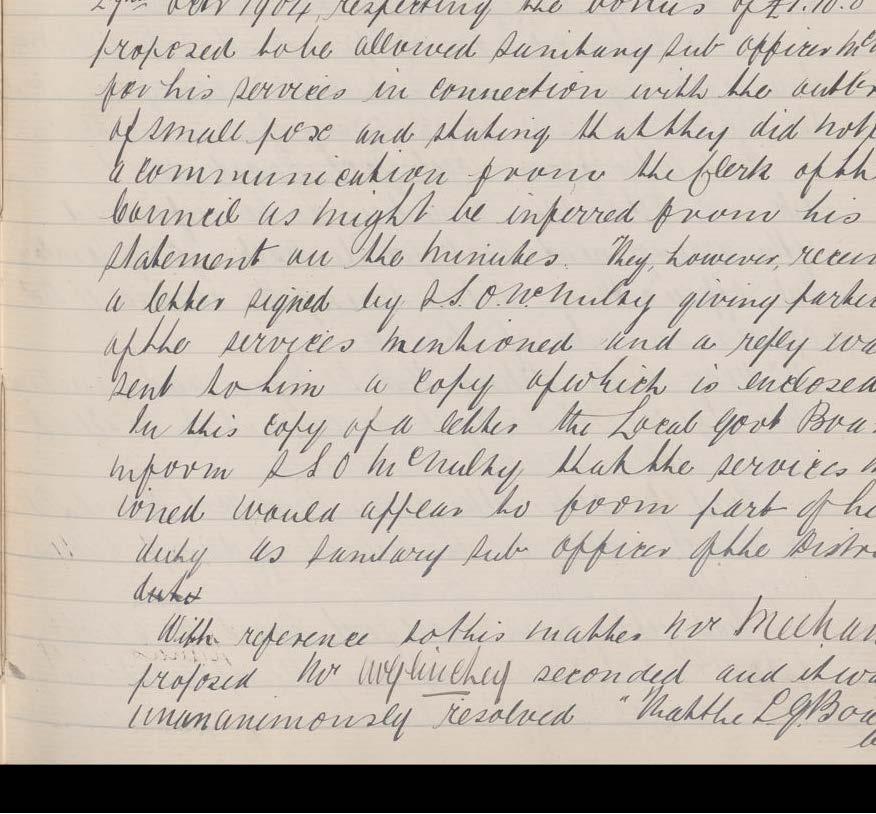 29th Octr 1904, respecting the bonus of £1.10.0
proposed to be allowed sanitary sub officer Mc
for his services in connection with the outbr
of small pox and stating that they did not
a communication from the Clerk of th
Council as might be inferred from his
statement on the minutes. They, however, recei
a letter signed by S.S.O. McNulty giving parti
of the services mentioned and a reply wa
sent to him a copy of which is enclosed
In this copy of a letter the Local Govt Boa
inform S S O McNulty that the services m
ioned would appear to form part of hi
duty as sanitary sub officer of the Distri
With reference to this matter Mr Meehan
proposed Mr McGlinchey seconded and it wa
unananimously resolved "That the L.G. Boa